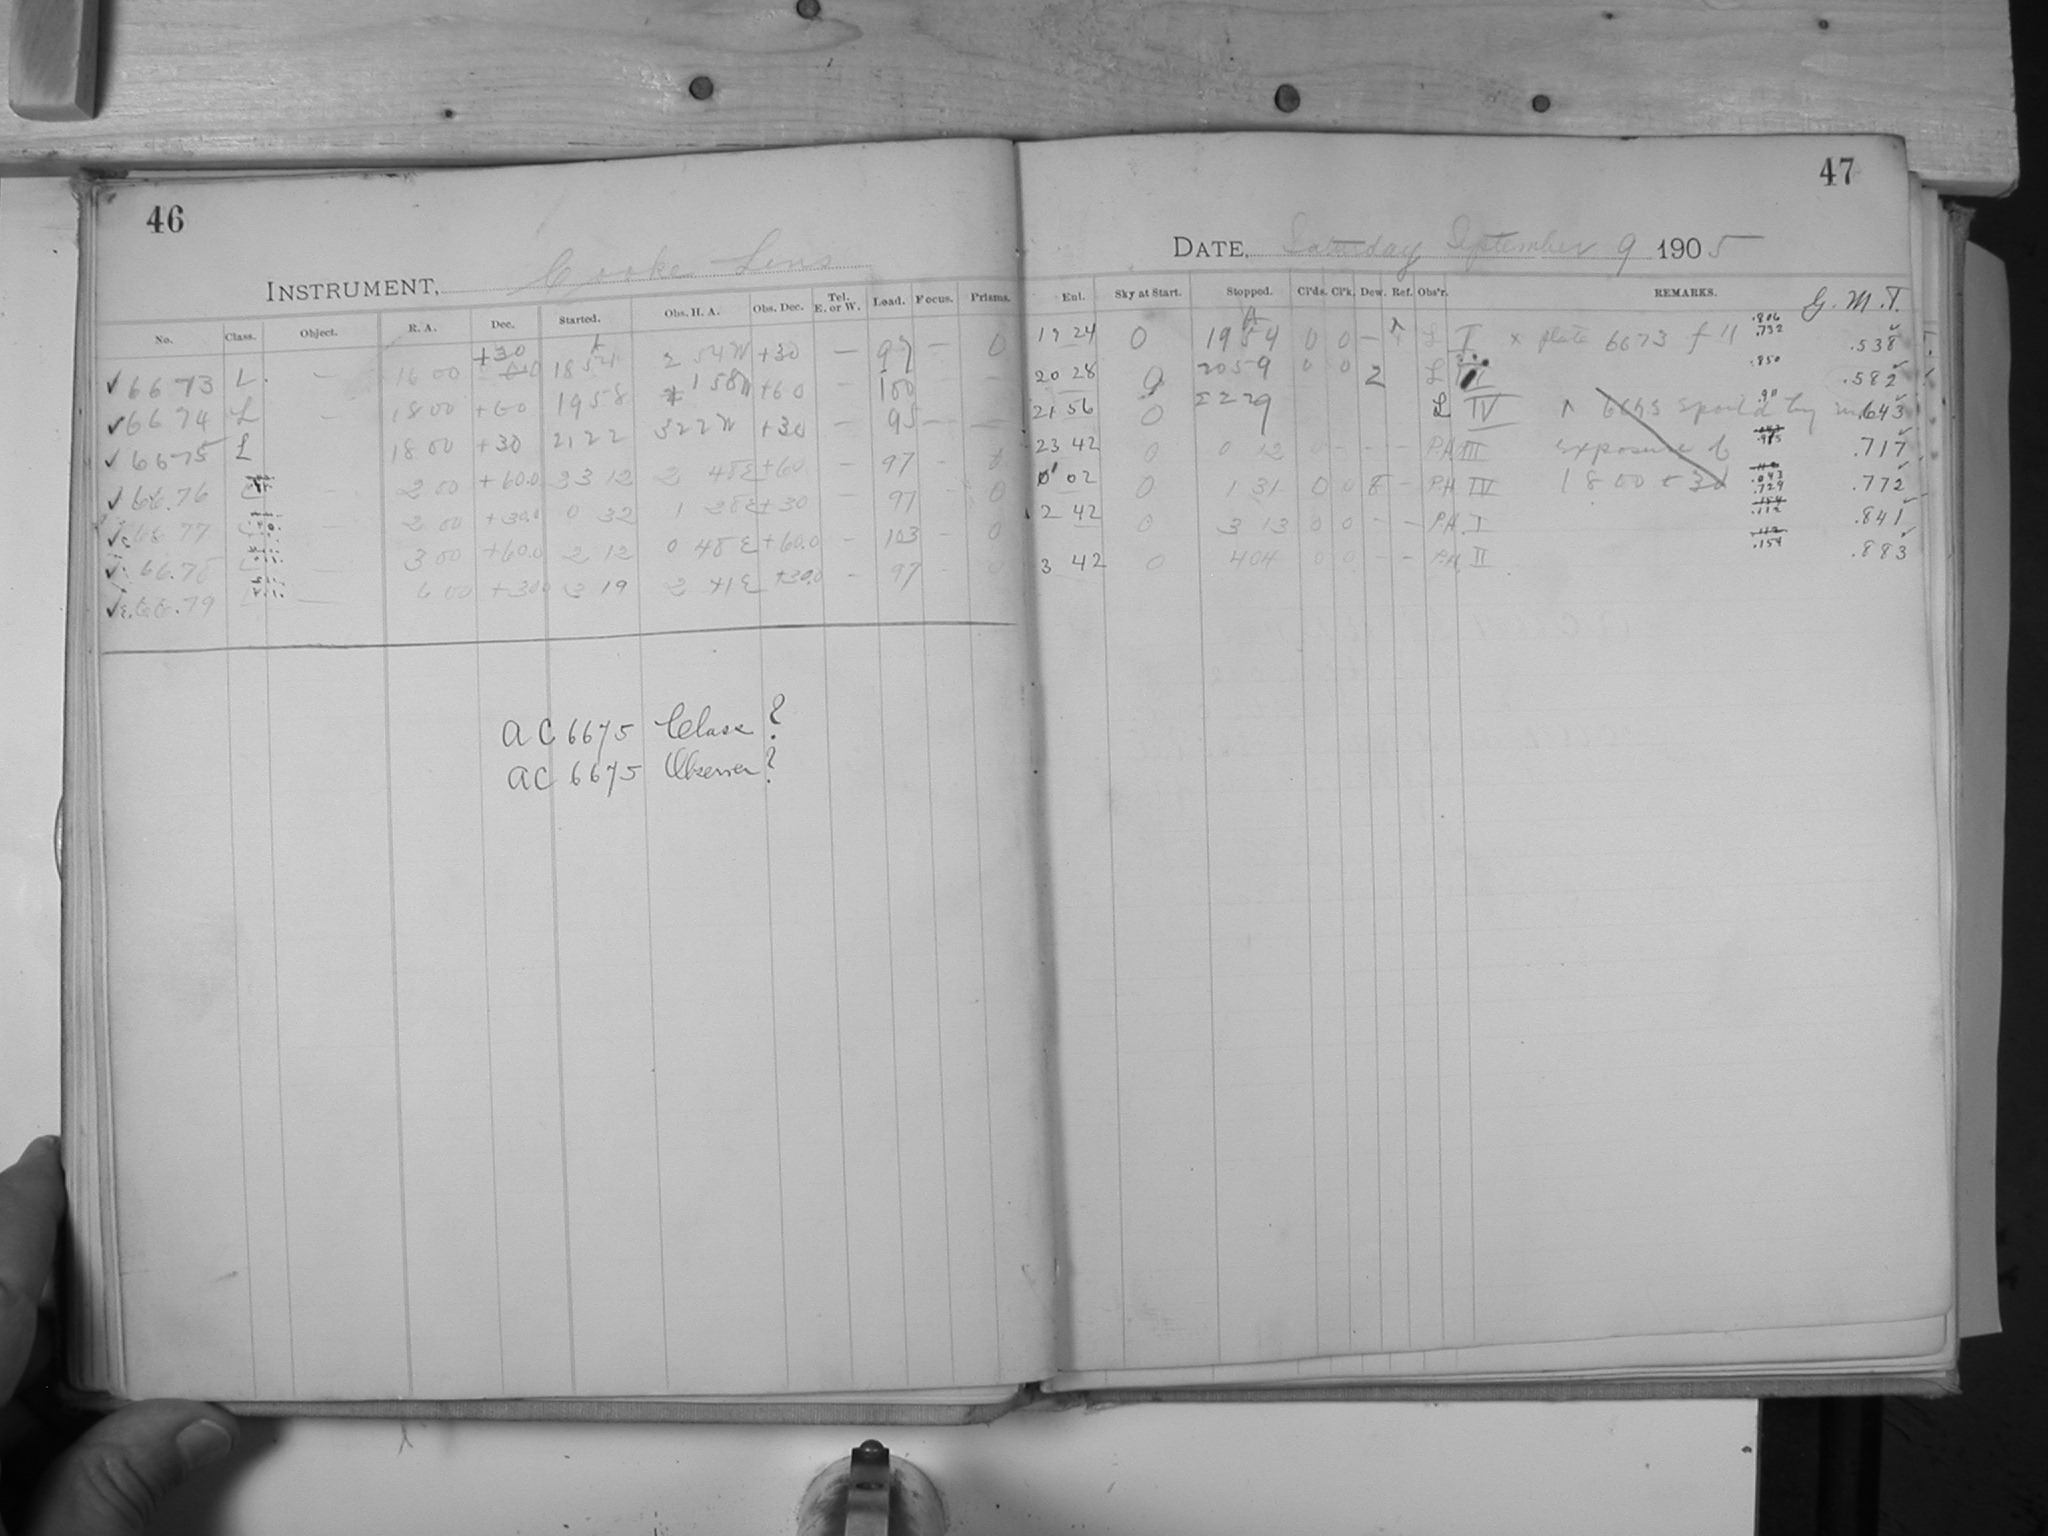 46
INSTRUMENT, Cooke Lens
No. Class. Object. R. A. Dec. Started. Obs. H. A. Obs. Dec. Tel. E. or W. Load. Focus. Prisms.
✓ 6673 L. — 16 00 +30 18 54 2 54 W +30 — 97 — 0
✓ 6674 L — 18 00 +60 19 58 1 58 W +60 — 100 — —
✓ 6675 L 18 00 +30 21 22 3 22 W +30 — 95 — —
✓ 66.76 — 2 00 +60.0 2 48 E +60 — 97 - 0
✓ 66 77 — 2 00 +30.0 0 32 1 28 E +30 97 - 0
✓ 66.78 — 3 00 +60.0 2 12 0 48 E +60.0 — 103 - 0
✓ 66.79 — 6 00 +300 3 19 2 41 E +30.0 - 97 - 0
AC 6675 Class?
AC 6675 Observer?
47
DATE, Saturday September 9 1905
Enl. Sky at Start. Stopped. Cl'ds. Cl'k. Dew. Ref. Obs'r. REMARKS. G. M. T.
19 24 0 19 54 0 0 — L I x plate 6673 f 11 .806 .732 .538
20 28 0 20 59 0 0 2 L .850 .582
21 56 0 22 29 L IV spoil'd by .911 .643
23 42 0 0 12 0 - - - P.H. III exposure of .985 .717
02 0 1 31 0 0 8 - P.H. IV 18 00 + 30 .043 .729 .772
2 42 0 3 13 0 0 - - P.H. I .112 .841
3 42 0 4 04 0 0 - - P.H. II .154 .883